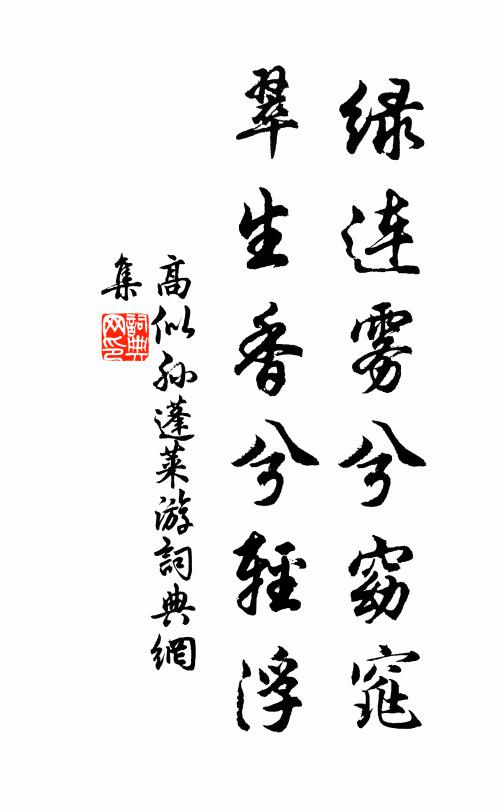 绿连雾兮窈窕
翠生香兮輕浮
高似孙蓬莱游詞典網
集
詞典网印